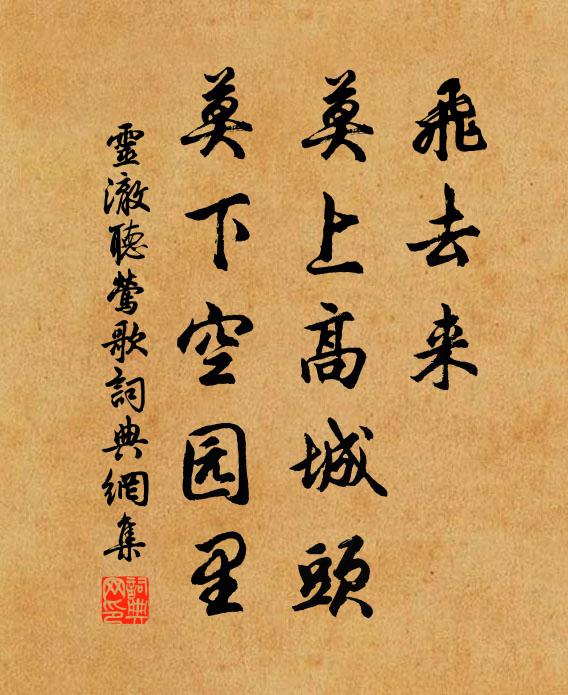 飛去来
莫上高城頭
莫下空园里
靈澈聽鶯歌詞典網集
詞典网印